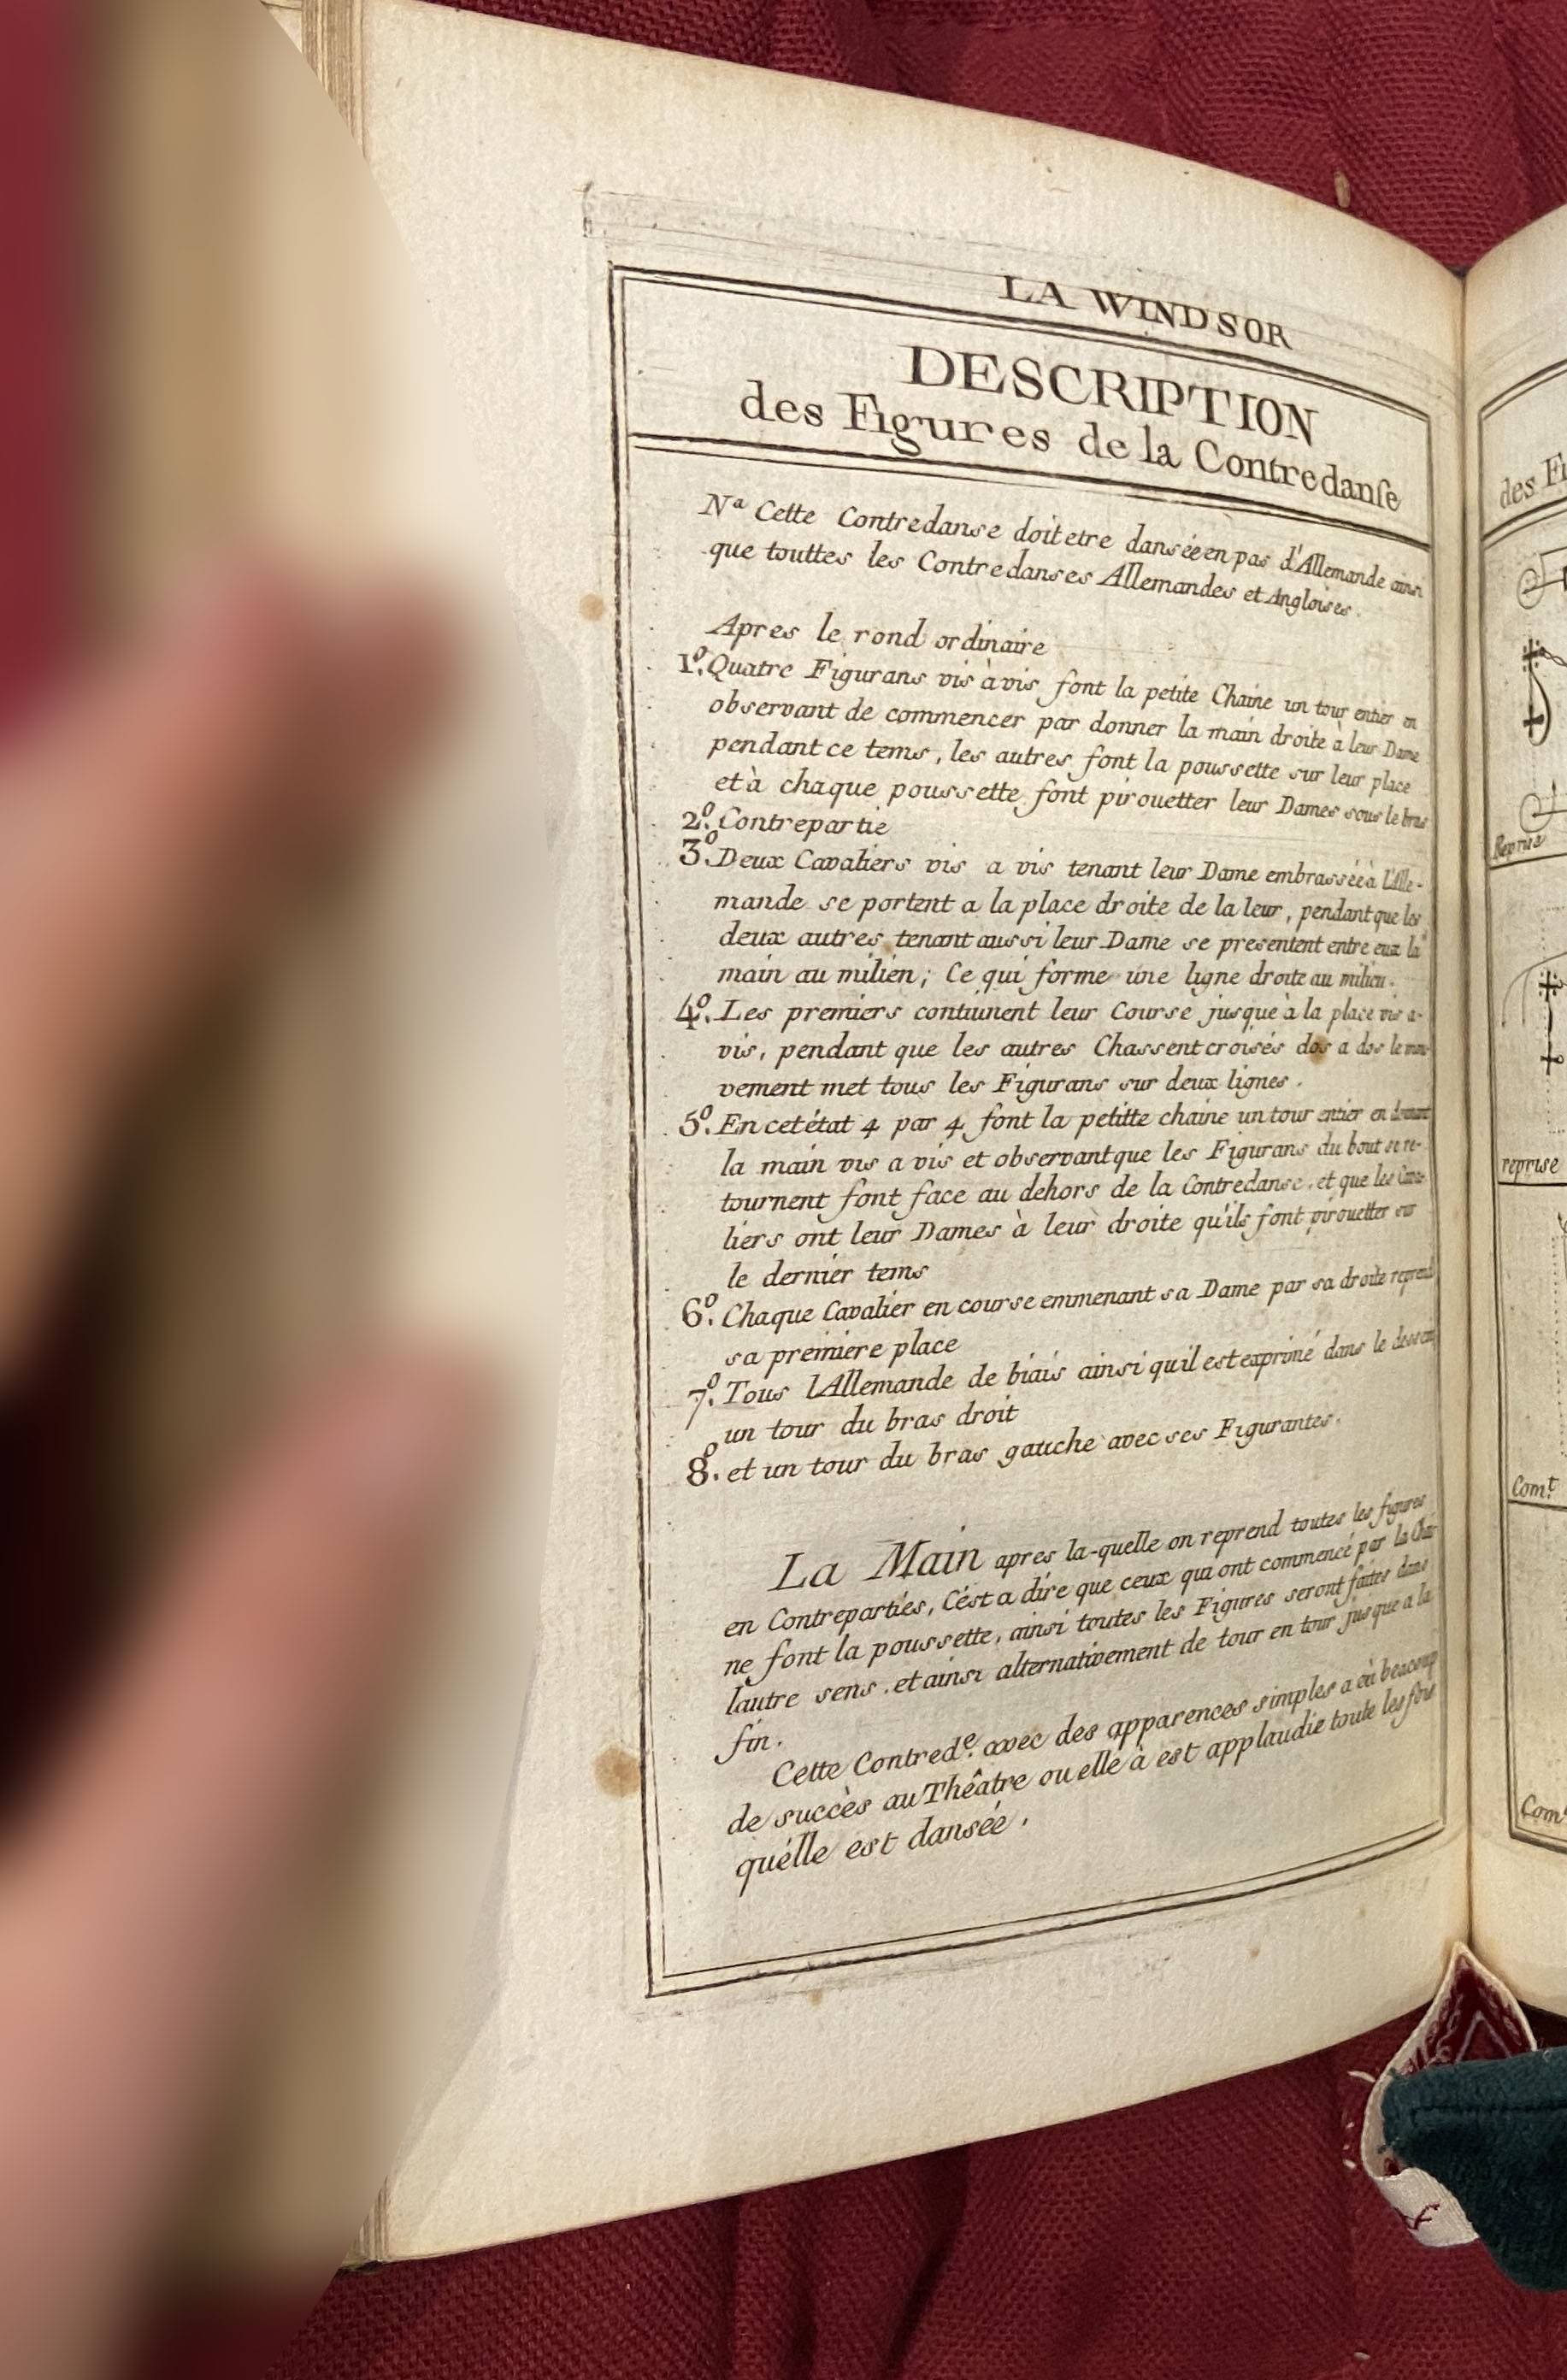 LA WINDSOR
DESCRIPTION
des Figures de la Contredanſe
Nª Cette Contredanse doit etre dansée en pas d'Allemande ainsi
que touttes les Contredanses Allemandes et Angloises.
Apres le rond ordinaire
1º. Quatre Figurans vis à vis font la petite Chaine un tour entier en
observant de commencer par donner la main droite à leur Dame
pendant ce tems, les autres font la poussette sur leur place
et à chaque poussette font pirouetter leur Dames sous le bras
2º. Contrepartie
3º. Deux Cavaliers vis a vis tenant leur Dame embrassée à l'Alle-
mande se portent a la place droite de la leur, pendant que les
deux autres tenant aussi leur Dame se presentent entre eux la
main au milien; Ce qui forme une ligne droite au milieu.
4º. Les premiers contiunent leur Course jusque à la place vis a-
vis, pendant que les autres Chassent croisés dos a dos le mou-
vement met tous les Figurans sur deux lignes.
5º. En cet état 4 par 4 font la petitte chaine un tour entier en donnant
la main vis a vis et observant que les Figurans du bout se re-
tournent font face au dehors de la Contredanse. et que les Cava-
liers ont leur Dames à leur droite qu'ils font pirouetter sur
le dernier tems
6º. Chaque Cavalier en course emmenant sa Dame par sa droite reprend
sa premiere place
7º. Tous lAllemande de biais ainsi quil est exprimé dans le dessein
un tour du bras droit
8º. et un tour du bras gauche avec ses Figurantes.
La Main apres la-quelle on reprend toutes les figures
en Contreparties, Cést a dire que ceux qui ont commencé par la Chai-
ne font la poussette, ainsi toutes les Figures seront faites dans
lautre sens. et ainsi alternativement de tour en tour jusque a la
fin.
Cette Contredᵉ. avec des apparences simples a eû beacoup
de succès au Théâtre ou elle à est applaudie toute les fois
quélle est dansée.
des Fi
Reprise
reprise
Com.t
Com.t